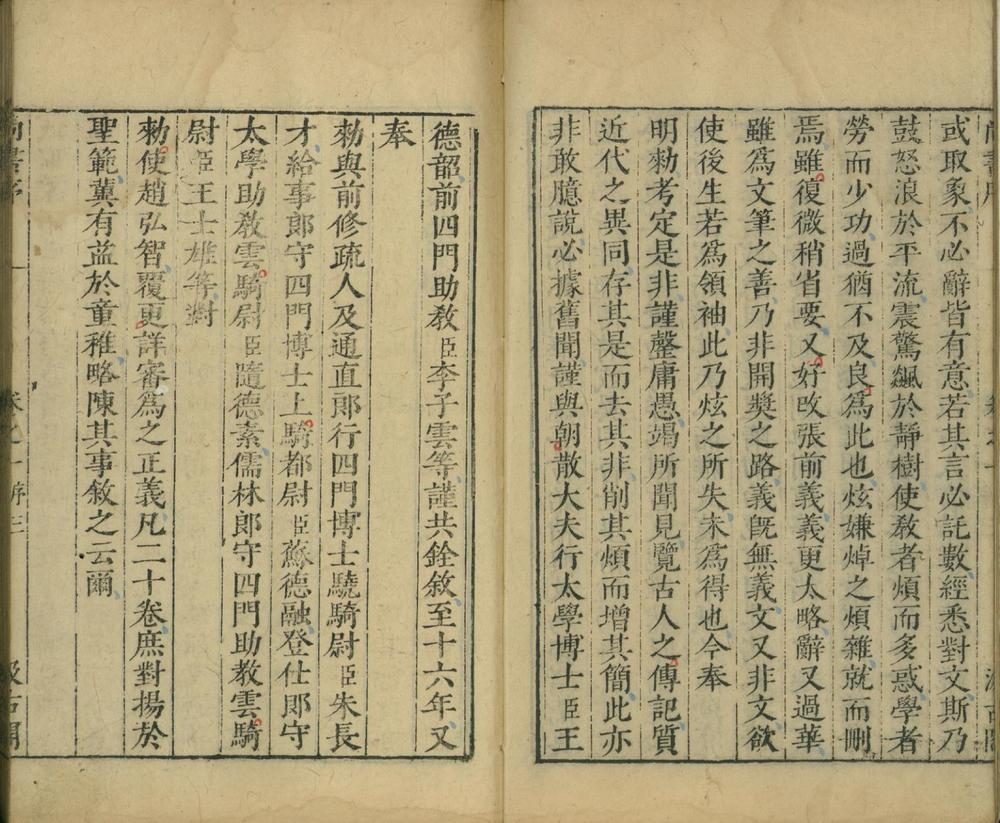 或取象不必辭皆有意若其言必託數經悉對文斯乃
鼓怒浪於平流震驚飆於靜樹使敎者煩而多惑學者
勞而少功過猶不及良爲此也炫嫌焯之煩雜就而刪
焉雖復微稍省要又好改張前義義更太略辭又過華
雖爲文筆之善乃非開奬之路義旣無義文又非文欲
使後生若爲領袖此乃炫之所失未爲得也今奉
明勑考定是非謹罄庸愚竭所聞見覽古人之傳記質
近代之異同存其是而去其非削其煩而增其簡此亦
非敢臆說必據舊聞謹與朝散大夫行太學博士臣王
德韶前四門助敎臣李子雲等謹共銓敘至十六年又
奉
勑與前修疏人及通直郎行四門博士驍騎尉臣朱長
才給事郎守四門博士上騎都尉臣蘇德融登仕郎守
太學助敎雲騎尉臣隨德素儒林郎守四門助敎雲騎
尉臣王士雄等對
勑使趙弘智覆更詳審爲之正義凡二十卷庶對揚於
聖範冀有益於童稚略陳其事敘之云爾